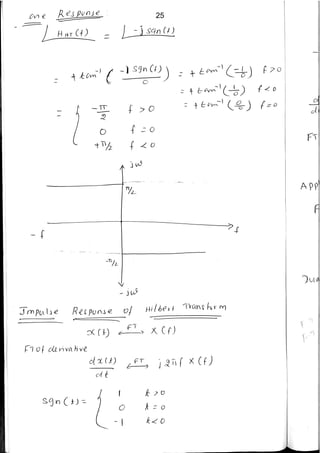 one Response
25
∠ H_HT (f) = ∠ -j sgn (f)
= + tan⁻¹ ( -1 sgn (f) / 0 ) = + tan⁻¹ (-1/0) f > 0
= + tan⁻¹ (1/0) f < 0
= + tan⁻¹ (0/0) f = 0
= { -π/2 f > 0
0 f = 0
+π/2 f < 0
jω
π/2
- f
f
-π/2
- jω
Impulse Response of Hilbert Transform
x(t) ⟷ FT X (f)
FT of derivative
d x(t) / dt ⟷ FT j 2πf X (f)
sgn (t) = { 1 t > 0
0 t = 0
-1 t < 0
FT
App
F
Dua